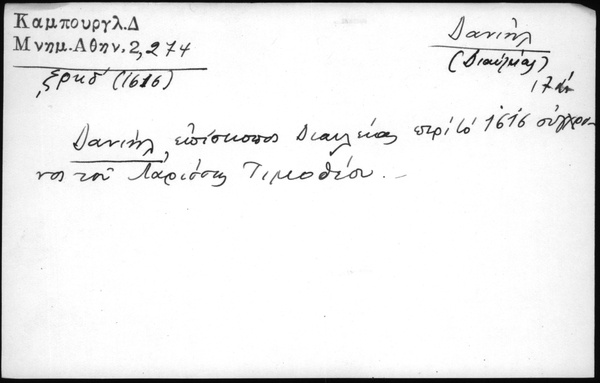 Καμπουργλ.Δ
Μνημ.Αθην.2,274
͵ζρκδ (1616)
Δανιήλ
(Διαυλείας)
17 αι
Δανιήλ, επίσκοπος Διαυλείας περί τό 1616 σύγχρο-
νος τού Λαρίσσης Τιμοθέου.—